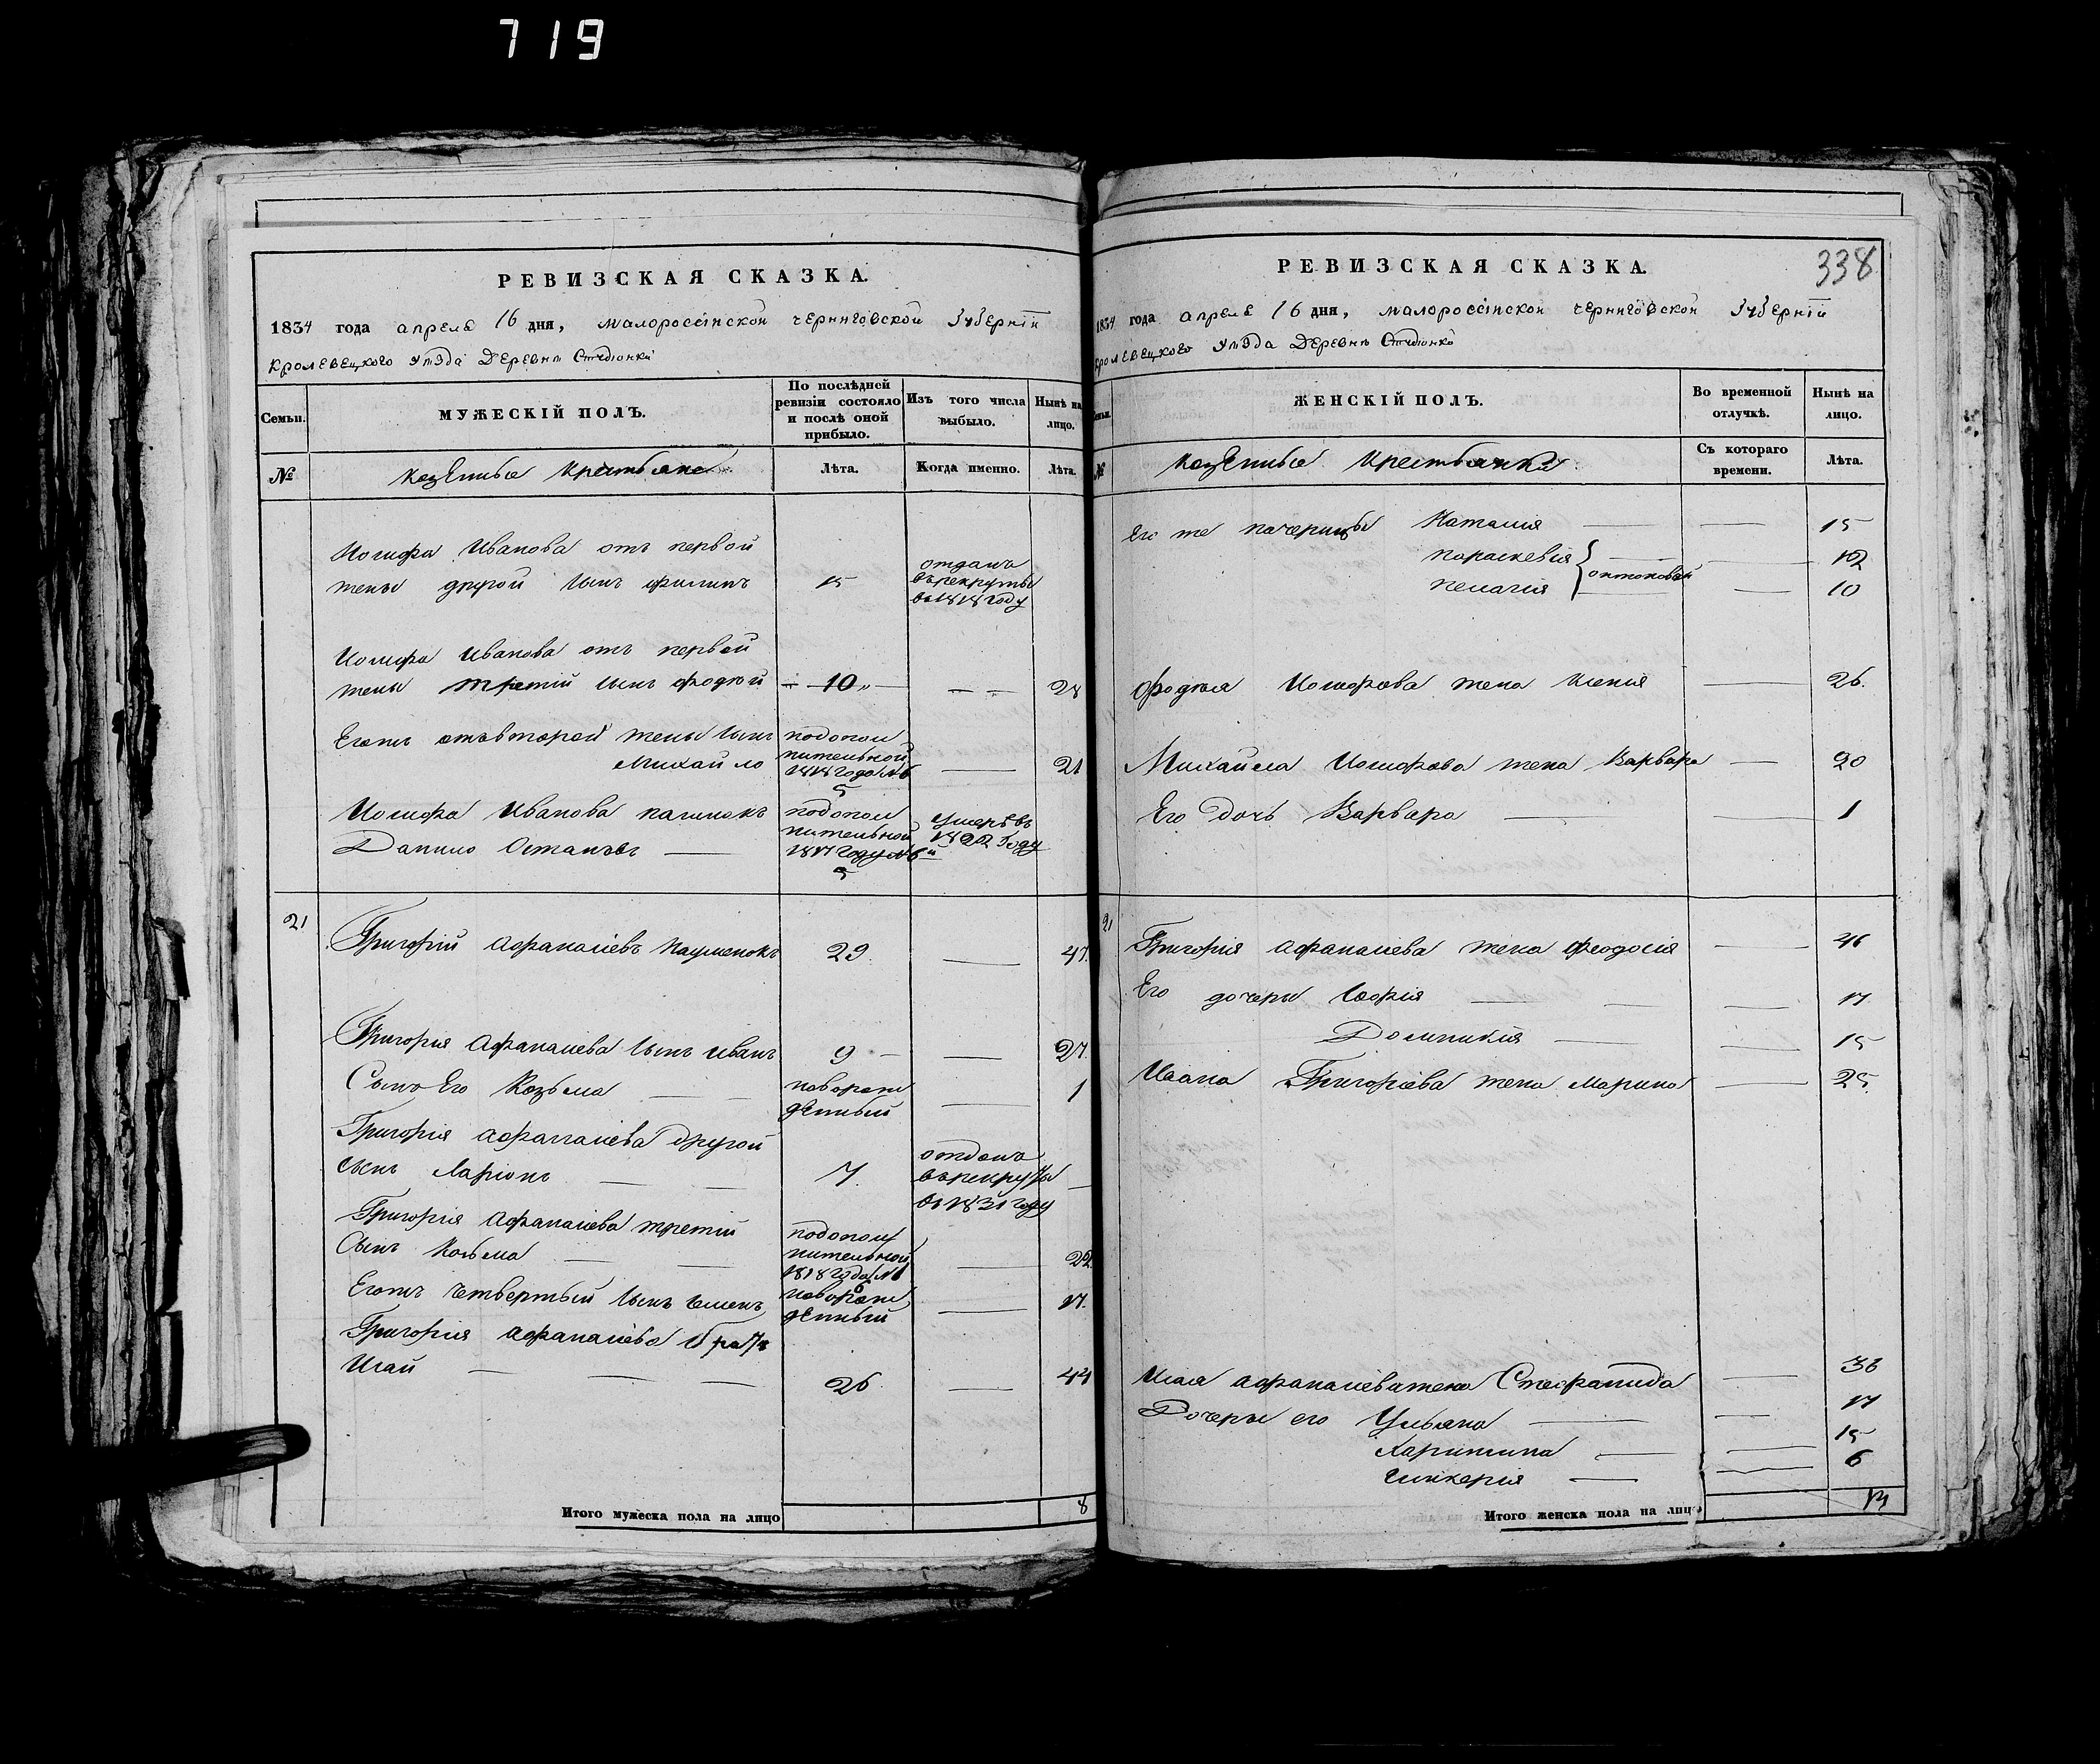 719
РЕВИЗСКАЯ СКАЗКА.
1834 года апреля 16 дня, малороссійской черниговской Губерніи
Кролевецкого уѣзда Деревнѣ Студіонки
Семьи.
МУЖЕСКІЙ ПОЛЪ.
По послѣдней ревизіи состояло и послѣ оной прибыло.
Изъ того числа выбыло.
Нынѣ на лицо.
№
Казенные крестьяне
Лѣта.
Когда именно.
Лѣта.
Иосифа Иванова отъ первой
жены другой сынъ филипъ 15 отданъ въ рекруты въ 1818 году
Иосифа Иванова отъ первой
жены третій сынъ фодѣй 10 28
Егожъ отъ второй жены сынъ
Михайло подополнительной 1818 года № 5 21
Иосифа Иванова пасынокъ
Данило Остаповъ подополнительной 1817 году № 5 умерѣ въ 1822 году
21 Григорій Афанасіевъ Науменокъ 29. 47.
Григорія Афанасіева сынъ иванъ 9 27.
Сынъ Его Козьма новорожденный 1
Григорія Афанасіева другой
сынъ Ларіонъ 7. отданъ въ рекруты въ 1831 году
Григорія Афанасіева третій
сынъ Козьма подополнительной 1818 года № 22
Егожъ четвертый сынъ новорожденный 17.
Григорія Афанасіева братъ
Исай 26 44
Итого мужеска пола на лицо 8
338
РЕВИЗСКАЯ СКАЗКА.
1834 года апреля 16 дня, малороссійской черниговской Губерніи
Кролевецкого уѣзда Деревнѣ Студіонки
ЖЕНСКІЙ ПОЛЪ.
Во временной отлучкѣ.
Нынѣ на лицо.
№
Казенные крестьянки
Съ котораго времени.
Лѣта.
Его же пачерицы Наталия 15
параскевія 12
пелагія 10
фодѣя Иосифова жена Ксенія 26.
Михайла Иосифова жена Варвара 20
Его дочь Варвара 1
21 Григорія Афанасіева жена феодосія 46
Его дочеры Софія 17
Домникія 15
Ивана Григоріева жена Марина 25.
Исая Афанасіева жена Стефанида 36
Дочеры его Ульяна 17
Харитина 15
Гликерія 6
Итого женска пола на лицо 13